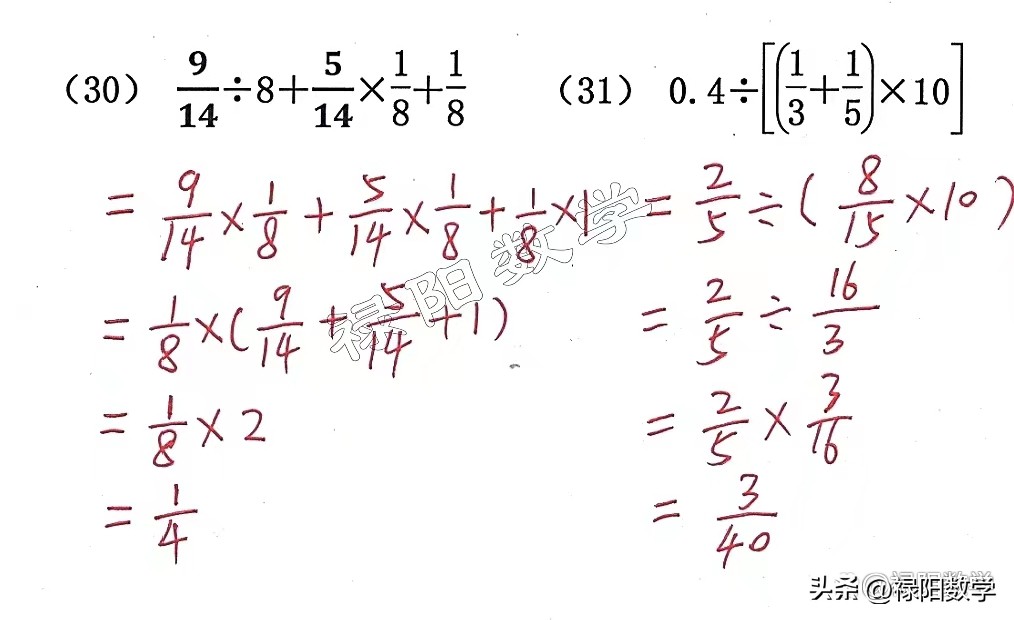 (30) 9/14÷8+5/14×1/8+1/8
=9/14×1/8+5/14×1/8+1/8×1
=1/8×(9/14+5/14+1)
=1/8×2
=1/4
(31) 0.4÷[(1/3+1/5)×10]
=2/5÷(8/15×10)
=2/5÷16/3
=2/5×3/16
=3/40
禄阳数学
禄阳数学
头条@禄阳数学